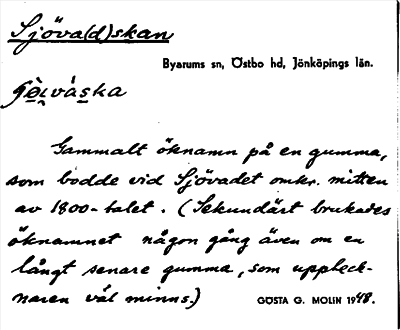 Sjöva(d)skan
Byarums sn, Östbo hd, Jönköpings län.
Gammalt öknamn på en gumma,
som bodde vid Sjövadet omkr. mitten
av 1800-talet. (Sekundärt brukades
öknamnet någon gång även om en
långt senare gumma, som uppteck-
naren väl minns.)
GÖSTA G. MOLIN 1948.